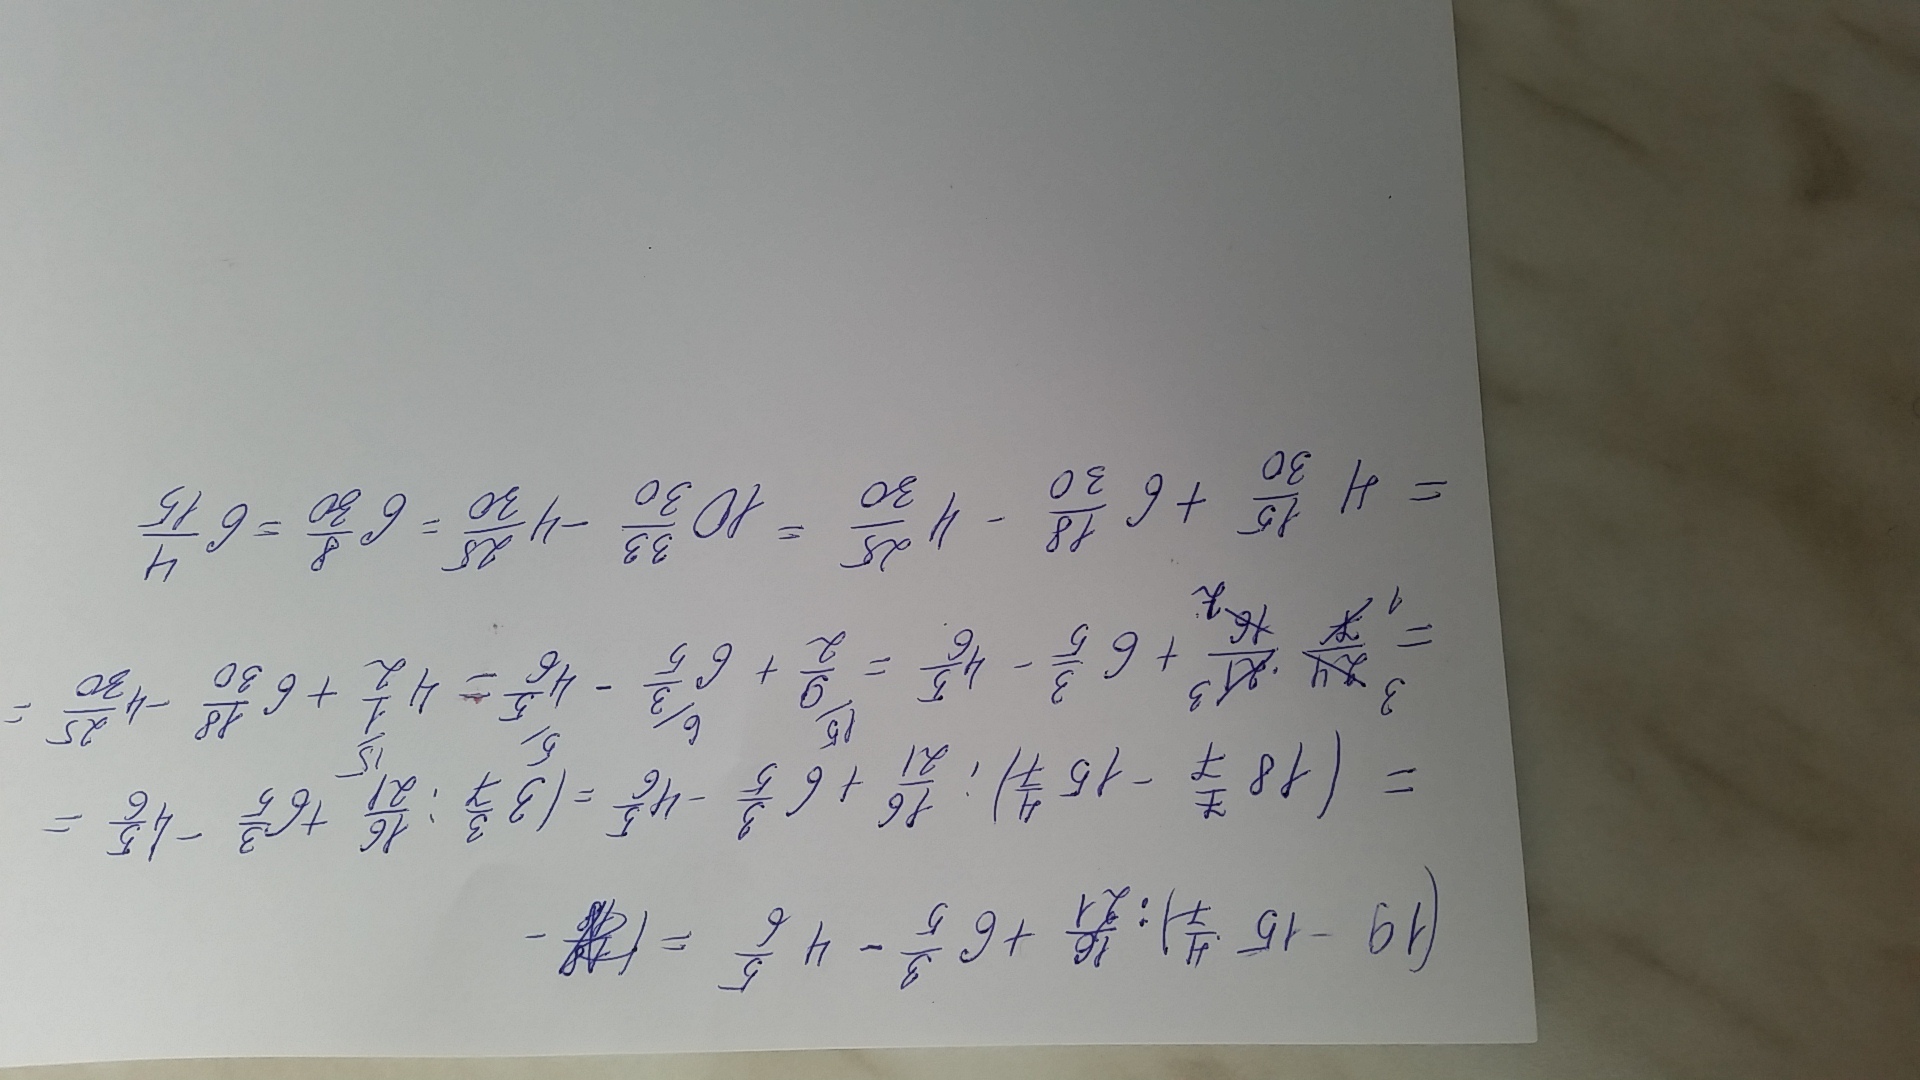 (19 - 15 4/7) : 16/21 + 6 3/5 - 4 5/6 = ( -
= (18 7/7 - 15 4/7) : 16/21 + 6 3/5 - 4 5/6 = (3 3/7 : 16/21 + 6 3/5 - 4 5/6 =
= 3 24/7 1 · 21 3/16 2 + 6 3/5 - 4 5/6 = 9/2 15/ + 6 3/5 6/ - 4 5/6 5/ = 4 1/2 15/ + 6 18/30 - 4 25/30 =
= 4 15/30 + 6 18/30 - 4 25/30 = 10 33/30 - 4 25/30 = 6 8/30 = 6 4/15